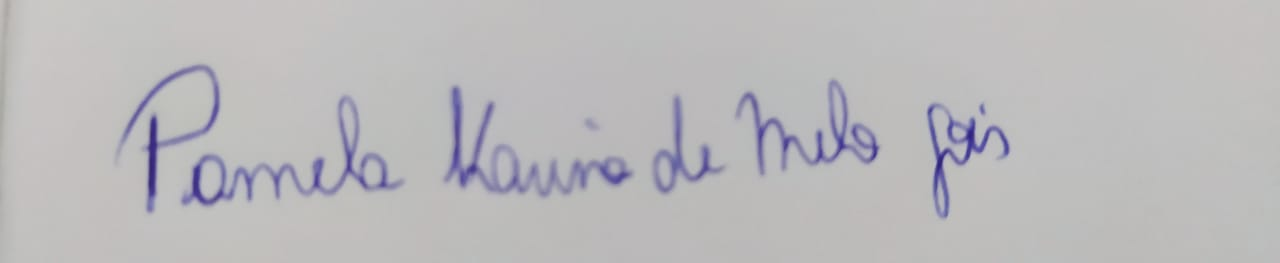 Pamela Karina de Melo Gois